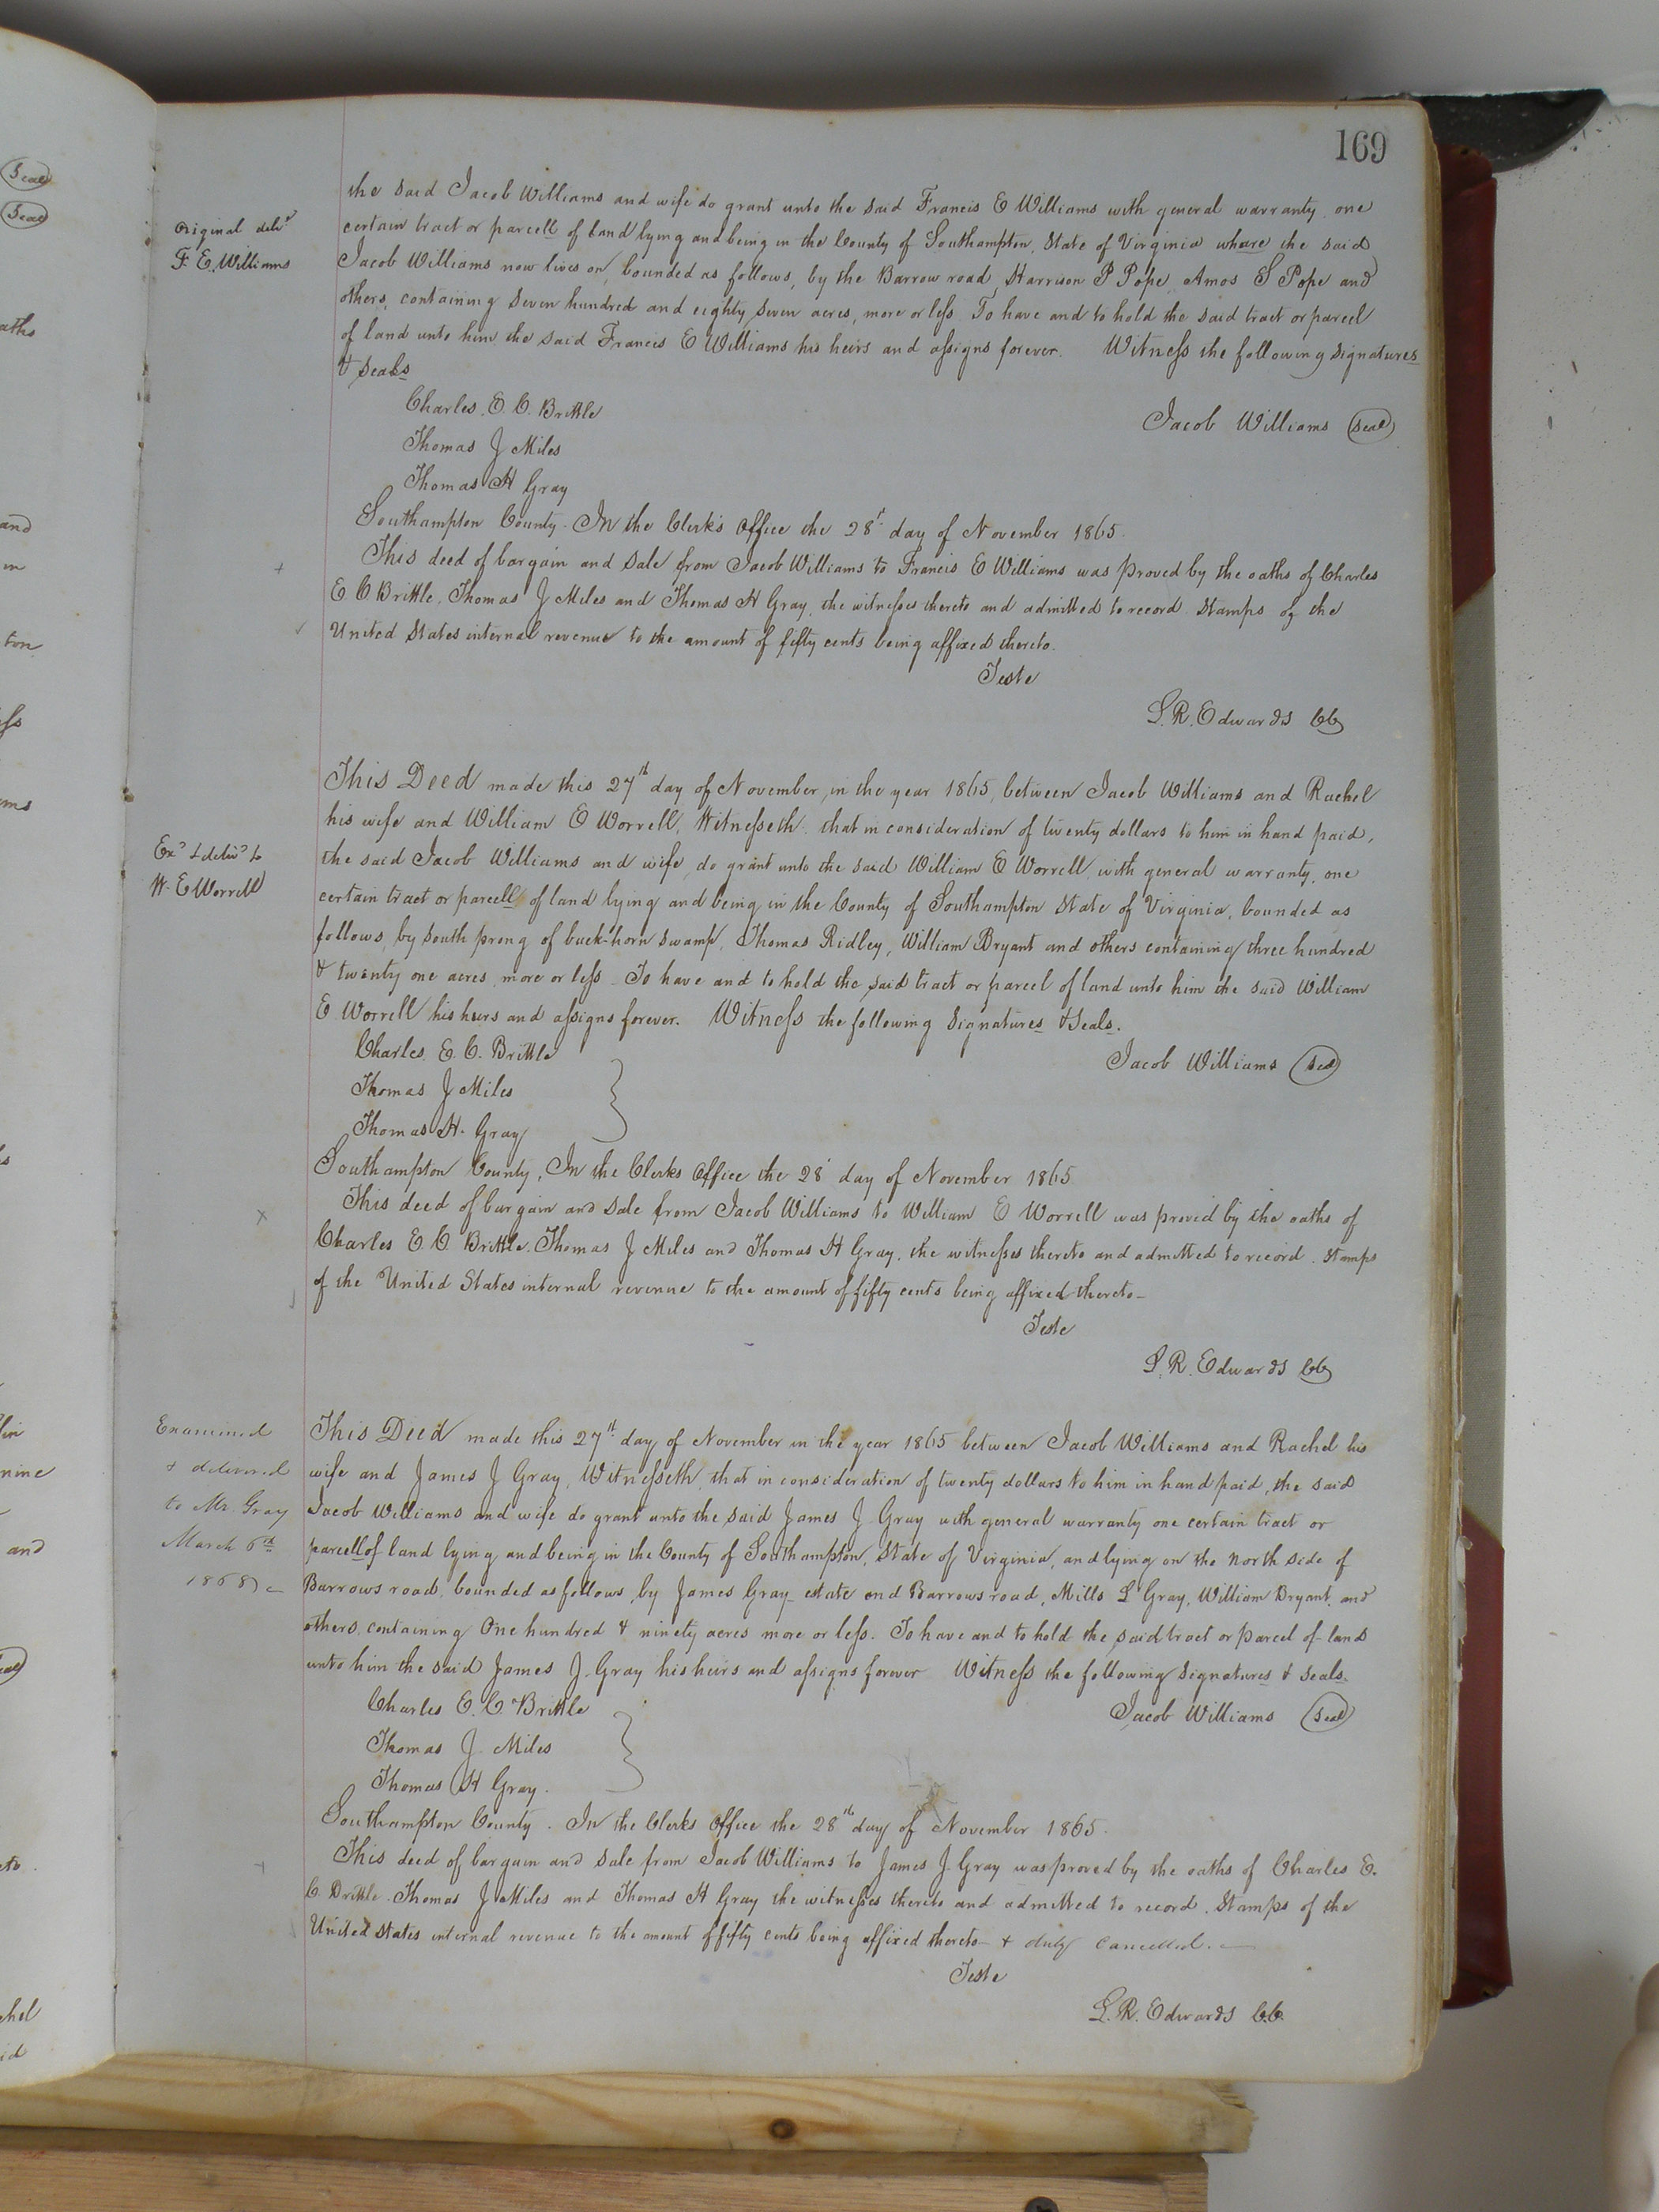 169
the said Jacob Williams and wife do grant unto the said Francis E Williams with general warranty, one
Original deliv^d
certain tract or parcell of land lying and being in the County of Southampton, State of Virginia whare the said
F. E. Williams
Jacob Williams now lives on, bounded as follows, by the Barrow road, Harrison P Pope, Amos S Pope and
others, containing seven hundred and eighty seven acres, more or less To have and to hold the said tract or parcel
of land unto him the said Francis E Williams his heirs and assigns forever. Witness the following signatures
& seals
Charles. E. C. Brittle
Jacob Williams (Seal)
Thomas J Miles
Thomas H Gray
Southampton County. In the Clerk's Office the 28^t day of November 1865.
This deed of bargain and sale from Jacob Williams to Francis E Williams was proved by the oaths of Charles
E C Brittle, Thomas J Miles and Thomas H Gray, the witnesses thereto and admitted to record. Stamps of the
United States internal revenue to the amount of fifty cents being affixed thereto.
Teste
L. R. Edwards CC
This Deed made this 27^th day of November, in the year 1865, between Jacob Williams and Rachel
his wife and William E Worrell, Witnesseth, that in consideration of twenty dollars to him in hand paid,
Ex^d & deliv^d to
the said Jacob Williams and wife, do grant unto the said William E Worrell, with general warranty, one
W. E Worrell
certain tract or parcell of land lying and being in the County of Southampton State of Virginia, bounded as
follows, by south prong of buck-horn swamp, Thomas Ridley, William Bryant and others containing three hundred
& twenty one acres, more or less. To have and to hold the said tract or parcel of land unto him the said William
E Worrell his heirs and assigns forever. Witness the following signatures & Seals.
Charles. E. C. Brittle
Jacob Williams (Seal)
Thomas J Miles
Thomas H. Gray
Southampton County, In the Clerks Office the 28 day of November 1865.
This deed of bargain and sale from Jacob Williams to William E Worrell was proved by the oaths of
Charles E C Brittle, Thomas J Miles and Thomas H Gray, the witnesses thereto and admitted to record. Stamps
of the United States internal revenue to the amount of fifty cents being affixed thereto-
Teste
L. R. Edwards CC
Examined
This Deed made this 27^th day of November in the year 1865 between Jacob Williams and Rachel his
& delivered
wife and James J Gray, Witnesseth, that in consideration of twenty dollars to him in hand paid, the said
to Mr. Gray
Jacob Williams and wife do grant unto the said James J Gray with general warranty one certain tract or
March 6^th
parcell of land lying and being in the County of Southampton, State of Virginia, and lying on the north side of
1868
Barrows road, bounded as follows, by James Gray estate and Barrows road, Mills L Gray, William Bryant, and
others, containing One hundred & ninety acres more or less. To have and to hold the said tract or parcel of land
unto him the said James J. Gray his heirs and assigns forever Witness the following signatures & seals.
Charles E. C. Brittle
Jacob Williams (Seal)
Thomas J. Miles
Thomas H Gray.
Southampton County. In the Clerks Office the 28^th day of November 1865.
This deed of bargain and sale from Jacob Williams to James J Gray was proved by the oaths of Charles E.
C Brittle, Thomas J Miles and Thomas H Gray the witnesses thereto and admitted to record. Stamps of the
United States internal revenue to the amount of fifty cents being affixed thereto & duly cancelled.
Teste
L. R. Edwards C.C.